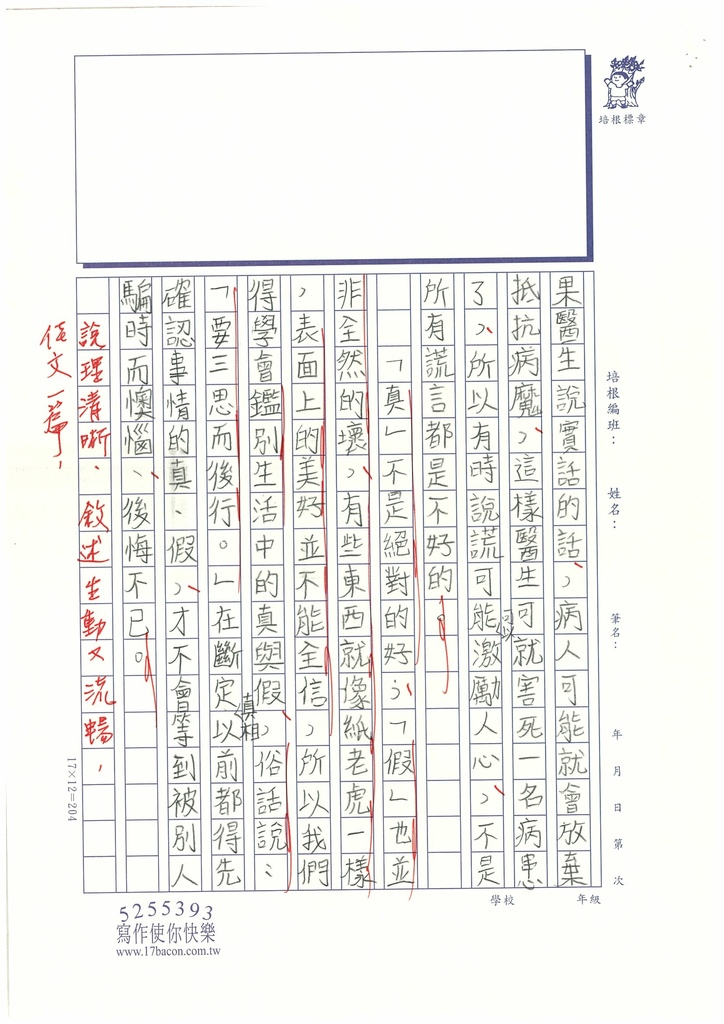 果醫生說實話的話，病人可能就會放棄
抵抗病魔，這樣醫生可就害死一名病患
了，所以有時說謊可能激勵人心，不是
可以
所有謊言都是不好的。
「真」不是絕對的好；「假」也並
非全然的壞，有些東西就像紙老虎一樣
，表面上的美好並不能全信，所以我們
得學會鑑別生活中的真與假，俗話說：
「要三思而後行。」在斷定以前都得先
真相
確認事情的真、假，才不會等到被別人
騙時而懊惱、後悔不已。
說理清晰、敘述生動又流暢，
佳文一篇，
培根標章
培根編班：
姓名：
筆名：
年 月 日 第 次
學校
年級
17×12=204
5255393
寫作使你快樂
www.17bacon.com.tw